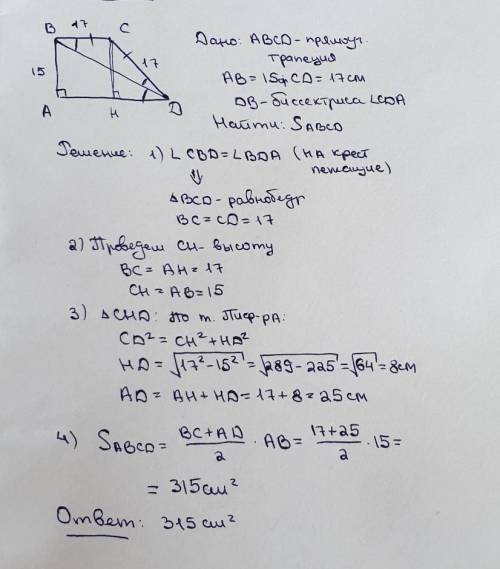 B 17 C
15 17
A H D
Дано: ABCD - прямоуг.
трапеция
AB = 15 CD = 17 см
DB - биссектриса ∠CDA
Найти: SABCD
Решение: 1) ∠CBD = ∠BDA (на крест
лежащие)
⇓
△BCD - равнобедр
BC = CD = 17
2) Проведем CH - высоту
BC = AH = 17
CH = AB = 15
3) △CHD: по т. Пиф-ра:
CD² = CH² + HD²
HD = √17² - 15² = √289 - 225 = √64 = 8см
AD = AH + HD = 17 + 8 = 25 см
4) SABCD = BC + AD / 2 · AB = 17 + 25 / 2 · 15 =
= 315 см²
Ответ: 315 см²